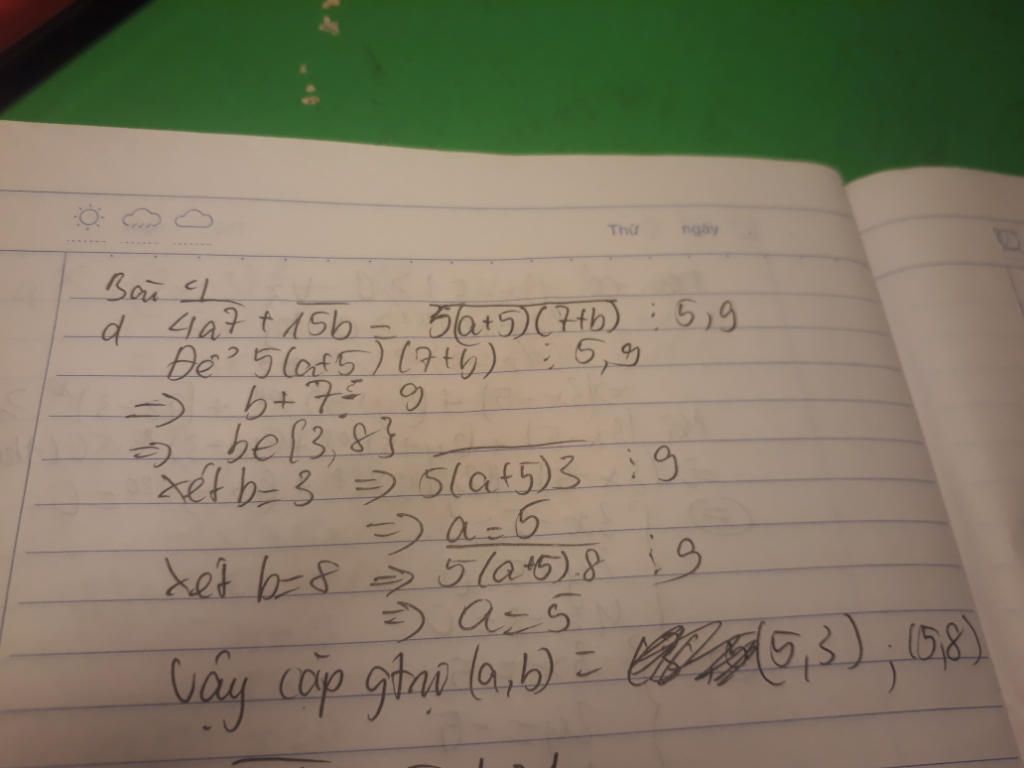 Thứ ngày
Bài 4
d 4a7 + 15b = 5(a+5)(7+b) ⋮ 5,9
Để 5(a+5)(7+b) ⋮ 5,9
=> b+7 ⋮ 9
=> b∈{3,8}
Xét b=3 => 5(a+5)3 ⋮ 9
=> a=5
Xét b=8 => 5(a+5).8 ⋮ 9
=> a=5
Vậy cặp gtrị (a,b) = (5,3) ; (5,8)